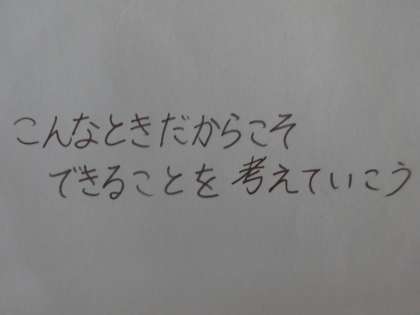 こんなときだからこそ
できることを考えていこう